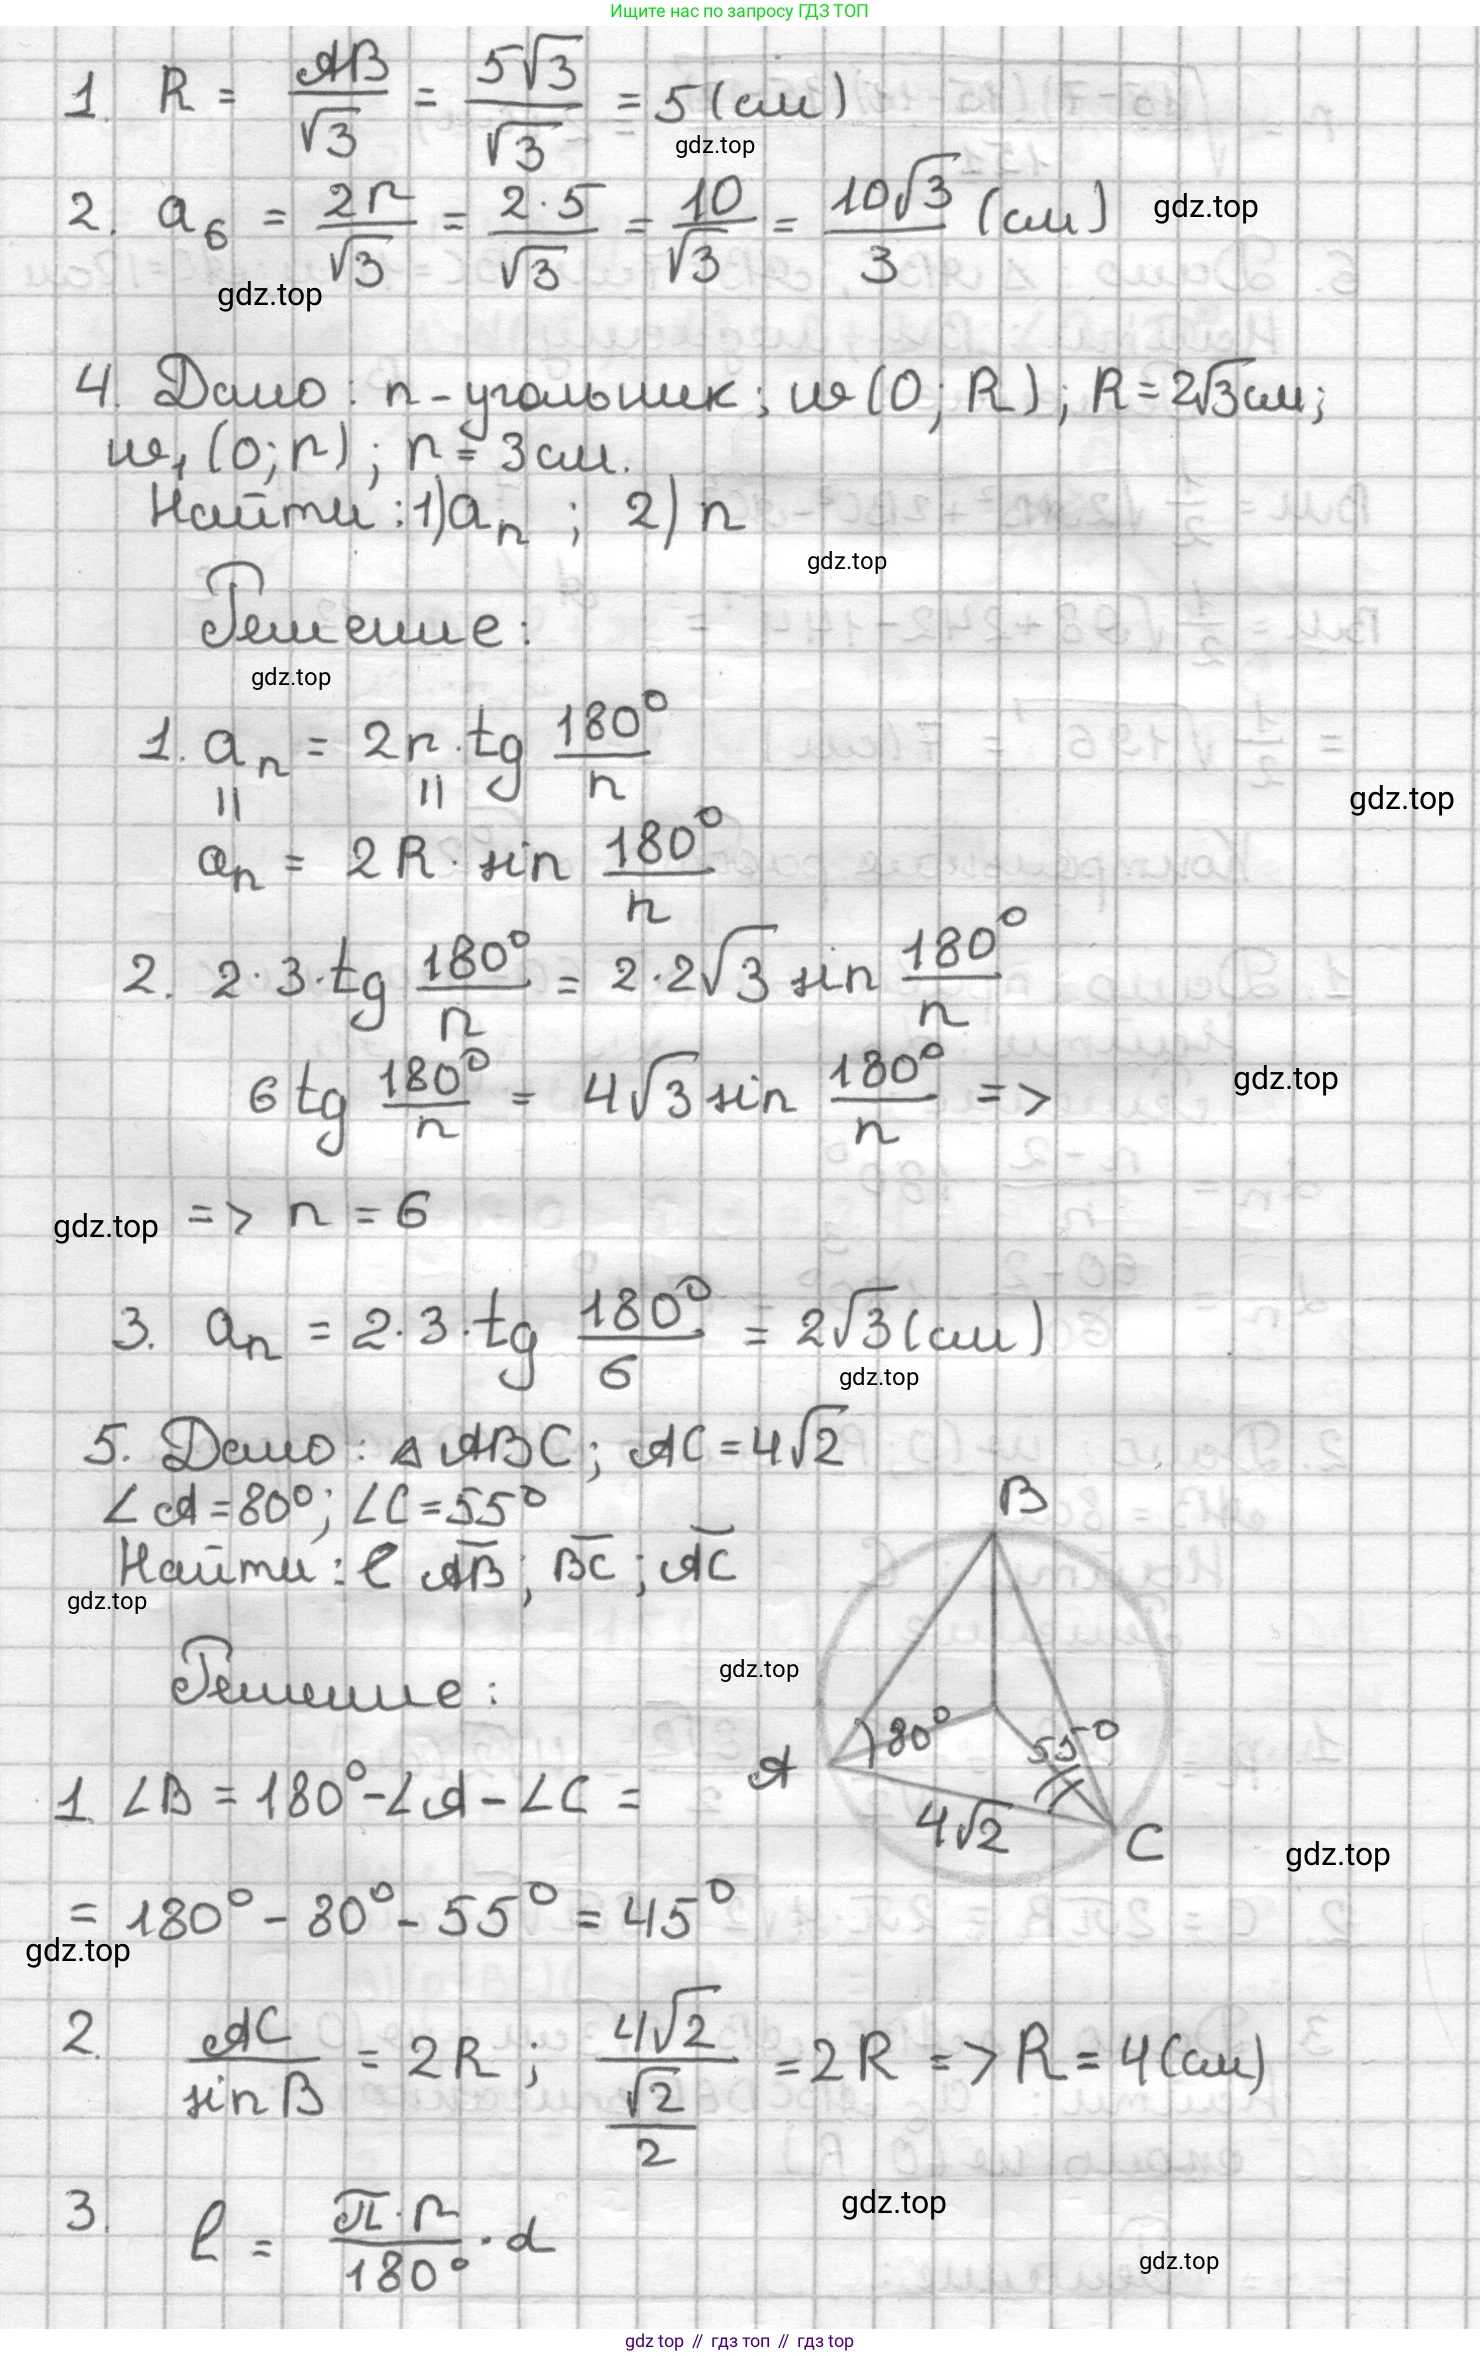 Ищите нас по запросу ГДЗ ТОП
1. R = AB/√3 = 5√3/√3 = 5 (см)
gdz.top
2. a₆ = 2r/√3 = 2·5/√3 = 10/√3 = 10√3/3 (см)
gdz.top
gdz.top
4. Дано: n-угольник; w(O; R); R=2√3см;
w₁(O; r); r = 3см.
Найти: 1) aₙ; 2) n
gdz.top
Решение:
gdz.top
1. aₙ = 2r·tg 180°/n
|| ||
gdz.top
aₙ = 2R·sin 180°/n
2. 2·3·tg 180°/n = 2·2√3 sin 180°/n
6 tg 180°/n = 4√3 sin 180°/n =>
gdz.top
gdz.top
=> n = 6
3. aₙ = 2·3·tg 180°/6 = 2√3 (см)
gdz.top
5. Дано: △ABC; AC=4√2
∠A=80°; ∠C=55°
Найти: ℓ AB; BC; AC
gdz.top
B
Решение:
gdz.top
A
80°
55°
4√2
C
1. ∠B = 180°-∠A-∠C =
gdz.top
= 180° - 80° - 55° = 45°
gdz.top
2. AC/sin B = 2R; 4√2/(√2/2) = 2R => R = 4(см)
3. ℓ = π·r/180° · d
gdz.top
gdz.top
gdz top // гдз топ // gdz.top